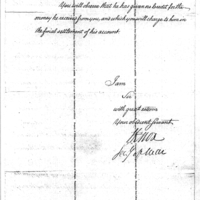 You will observe that he has given no credit for the
money he received from you, and which you will charge to him on
the final settlement of his account.
I am
Sir
with great esteem
Your obedient servant,
H Knox
Sec'y of War